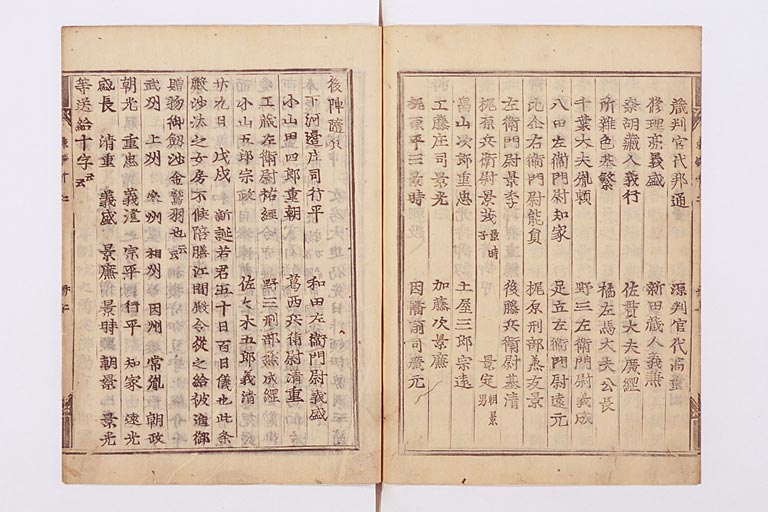 藏判官代邦通 源判官代高重
修理亮義盛 新田藏人義兼
奈胡藏人義行 佐貫大夫廣經
所雜色基繁 橘左馬大夫公長
千葉大夫胤頼 野三左衛門尉義成
八田左衛門尉知家 足立左衛門尉遠元
比企右衛門尉能員 梶原刑部丞友景
左衛門尉景季 後藤兵衛尉基清
梶原兵衛尉景茂 景時子 景定 朝景男
畠山次郎重忠 土屋三郎宗遠
工藤庄司景光 加藤次景廉
梶原平三景時 因幡前司廣元
後陣隨兵
下河邊庄司行平 和田左衛門尉義盛
小山田四郎重朝 葛西兵衛尉清重
工藏左衛尉祐經 野三刑部丞成經
小山五郎宗政 佐々木五郎義清
廿九日 戊戌 新誕若君五十日百日儀也此条
嚴沙汰之女房不候陪膳江間殿令從之給被進御
贈物御劔沙金鷲羽也云云
武州 上州 相州 因州 常胤 朝政
朝光 重忠 義澄 宗平 行平 知家 遠光
盛長 清重 義盛 景廉 景時 朝景 景光
等送給十字云云